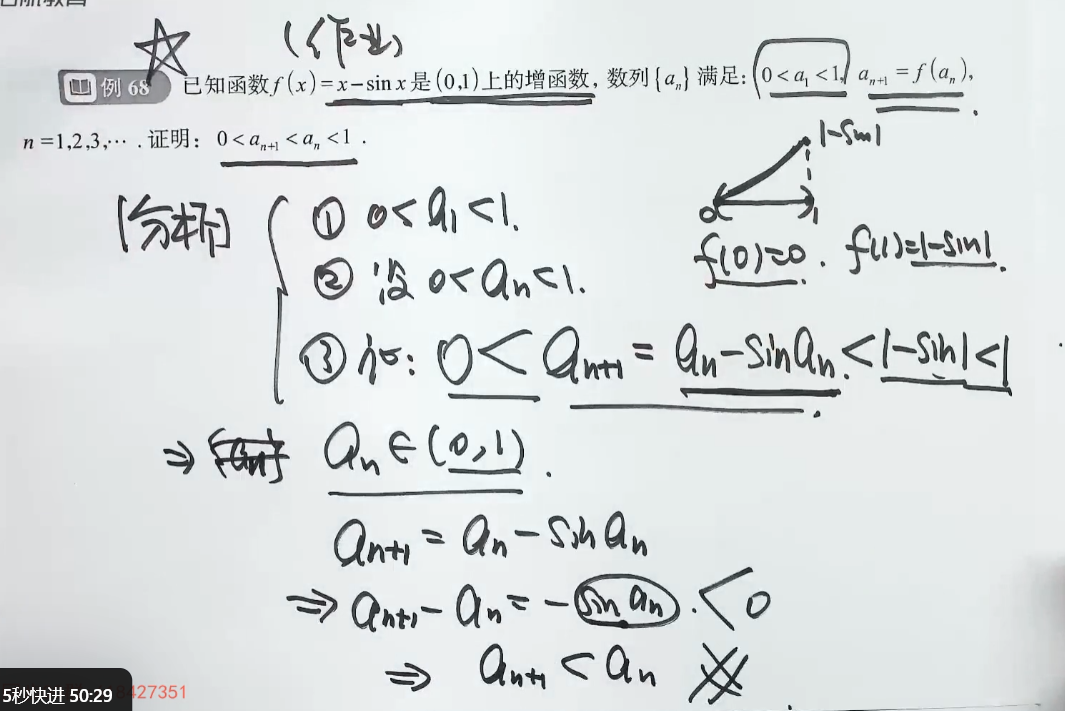 (作业)
例 68 已知函数f(x)=x−sin x是(0,1)上的增函数,数列{aₙ}满足:0<a₁<1, aₙ₊₁=f(aₙ),
n=1,2,3,⋯.证明:0<aₙ₊₁<aₙ<1.
1-sin1
0 1
[分析] ① 0<a₁<1.
f(0)=0. f(1)=1-sin1.
② 设 0<aₙ<1.
③ 证: 0<aₙ₊₁=aₙ-sinaₙ<1-sin1<1
⇒ aₙ∈(0,1).
aₙ₊₁=aₙ-sinaₙ
⇒ aₙ₊₁-aₙ=-sinaₙ.<0
⇒ aₙ₊₁<aₙ
5秒快进 50:29 427351